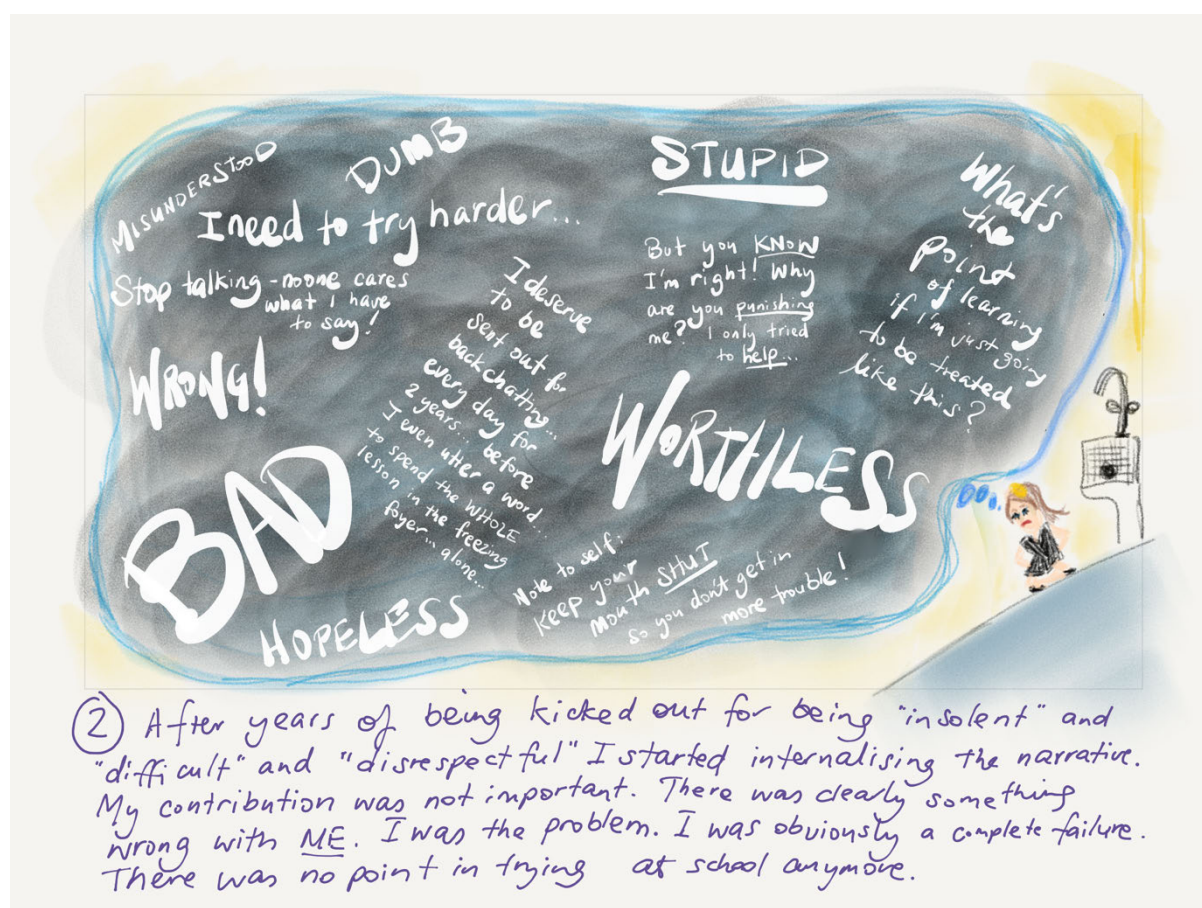 MISUNDERSTOOD
DUMB
I need to try harder...
Stop talking - no one cares
what I have
to say!
WRONG!
BAD
HOPELESS
I deserve
to be
sent out for
back chatting...
every day for
2 years... before
I even utter a word...
to spend the WHOLE
lesson in the freezing
foyer... alone...
STUPID
But you KNOW
I'm right! Why
are you punishing
me? I only tried
to help...
WORTHLESS
Note to self:
keep your
mouth SHUT
so you don't get in
more trouble!
What's
the
point
of learning
if I'm just going
to be treated
like this?
2 After years of being kicked out for being "insolent" and
"difficult" and "disrespectful" I started internalising the narrative.
My contribution was not important. There was clearly something
wrong with ME. I was the problem. I was obviously a complete failure.
There was no point in trying at school anymore.